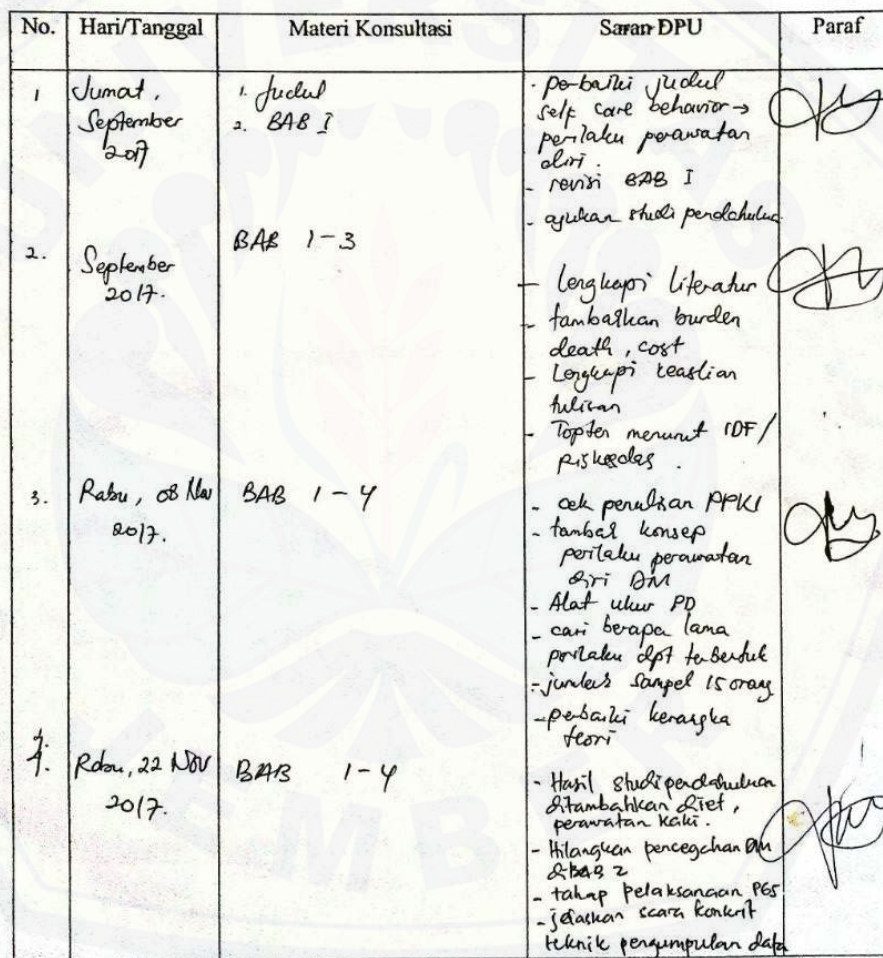 No. Hari/Tanggal Materi Konsultasi Saran DPU Paraf
1 Jumat, 1. Judul - perbaiki judul
September 2. BAB I self care behavior →
2017 perilaku perawatan
diri.
- revisi BAB I
- ajukan studi pendahuluan
2. September BAB 1-3
2017. - lengkapi literatur
- tambahkan burden
death, cost
- Lengkapi keaslian
tulisan
- Topten menurut IDF/
Riskesdas.
3. Rabu, 08 Nov BAB 1-4 - cek penulisan PPKI
2017. - tambah konsep
perilaku perawatan
diri DM
- Alat ukur PD
- cari berapa lama
perilaku dpt terbentuk
- jumlah sampel 15 orang
- perbaiki kerangka
teori
4. Rabu, 22 Nov BAB 1-4 - Hasil studi pendahuluan
2017. ditambahkan diet,
perawatan kaki.
- Hilangkan pencegahan DM
di BAB 2
- tahap pelaksanaan
- jelaskan scara konkrit
teknik pengumpulan data
UNIVERSITAS
JEMBER